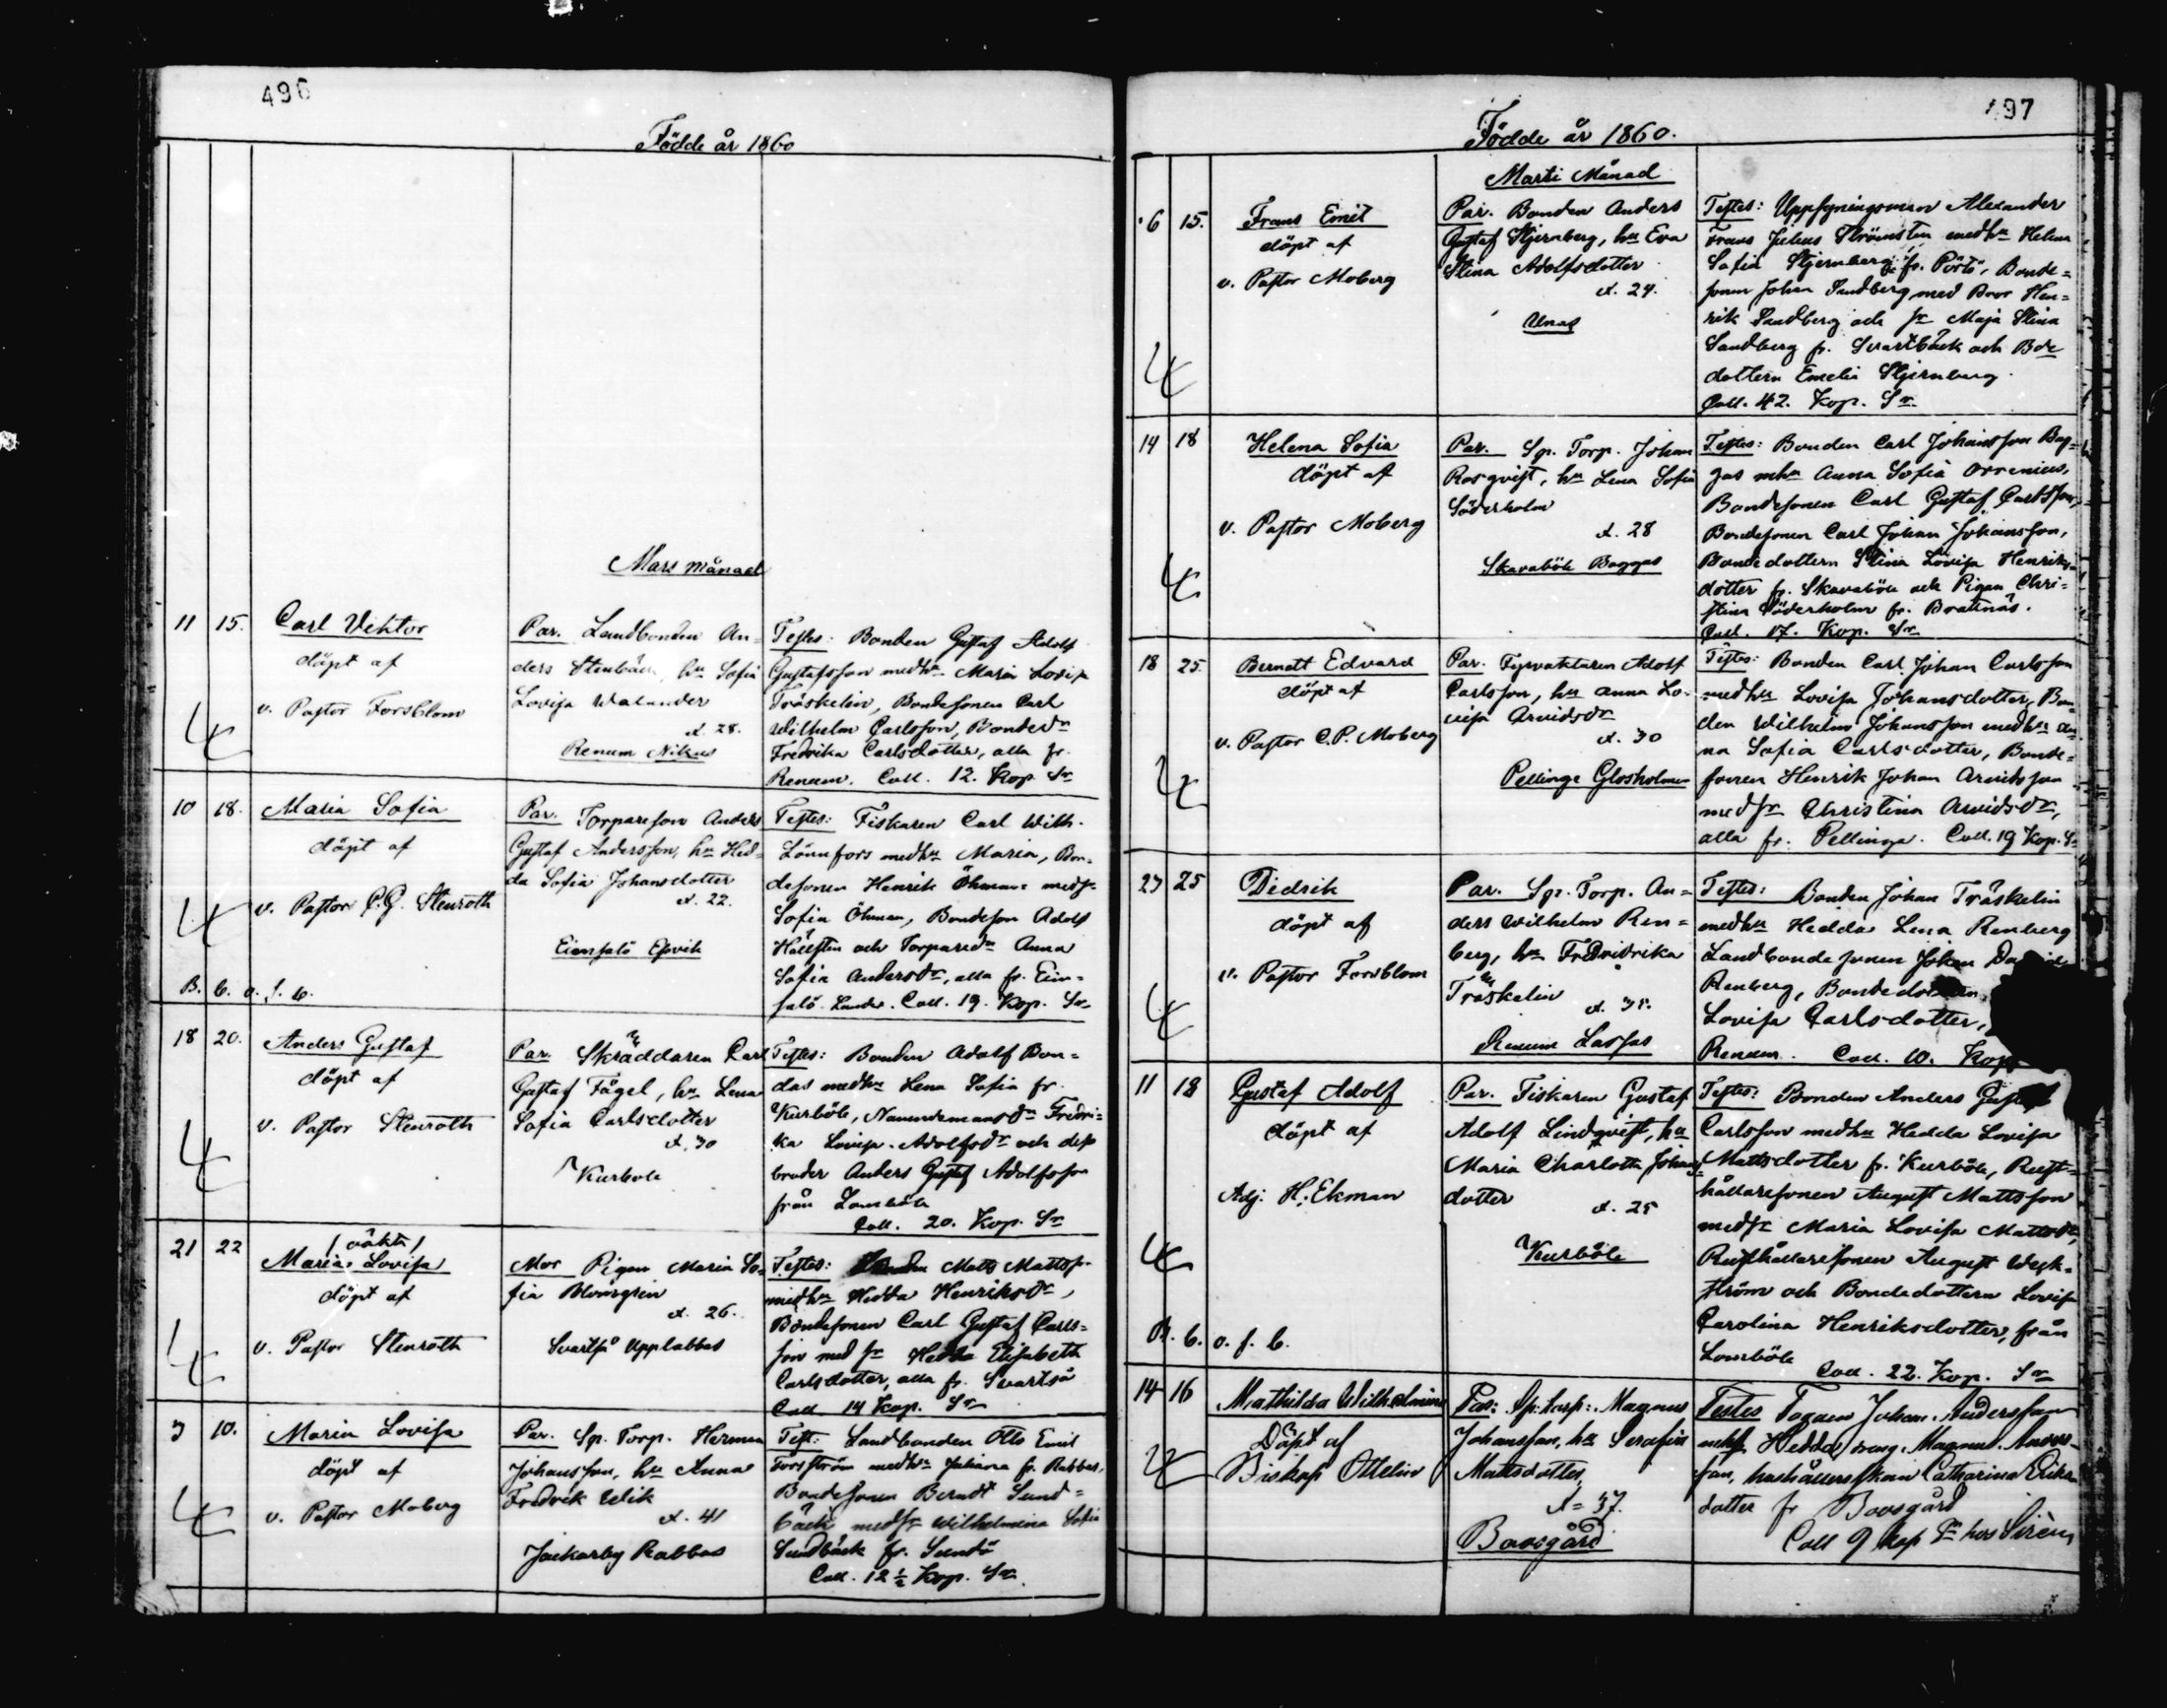 496
Födde år 1860
Mars månad
11 15. Carl Viktor
döpt af
v. Pastor Forsblom
Par. Landbonden An-
ders Stenbäck, hu Sofia
Lovisa Walander
et. 28.
Renum Nikus
Testes: Bonden Gustaf Adolf
Gustafsson medhu Maria Lovisa
Träskelin, Bondesonen Carl
Wilhelm Carlsson, Bondedr
Fredrika Carlsdotter, alla fr.
Renum. Coll. 12. Kop Sr
10 18. Maria Sofia
döpt af
v. Pastor C.G. Stenroth
B. b. o. f. b.
Par. Torpareson Anders
Gustaf Andersson, hu Hed-
da Sofia Johansdotter
et. 22.
Eiensalö Esvik
Testes: Fiskaren Carl Wilh.
Lönnfors medhu Maria, Bon-
desonen Henrik Öhman medsr
Sofia Öhman, Bondeson Adolf
Hällsten och Torparedr Anna
Sofia Andersdr, alla fr. Eien-
salö landet. Coll. 19. Kop. Sr
18 20. Anders Gustaf
döpt af
v. Pastor Stenroth
Par. Skräddaren Carl
Gustaf Fågel, hu Lena
Sofia Carlsdotter
et. 30
Kurböle
Testes: Bonden Adolf Bon-
das medhu Lena Sofia fr.
Kurböle, Nämndemansdr Fredri-
ka Lovisa Adolfsdr och dess
broder Anders Gustaf Adolfsson
från Lomböle
Coll. 20. Kop. Sr
21 22 (oäkta)
Maria Lovisa
döpt af
v. Pastor Stenroth
Mor Pigan Maria So-
fia Blomgren
et. 26.
Svartså Upplabbas
Testes: Matts Mattss.
medhu Hedda Henriksdr,
Bondesonen Carl Gustaf Carls-
son med sr Hedda Elisabeth
Carlsdotter, alla fr. Svartså
Coll 14 Kop. Sr
3 10. Maria Lovisa
döpt af
v. Pastor Moberg
Par. Sp. Torp. Herman
Johansson, hu Anna
Fredrik Ulik
et. 41
Jackarby Rabbas
Test: Landbonden Otto Emil
Forsström medhu Juliana fr. Rabbas,
Bondesonen Berndt Sund-
bäck medsr Wilhelmina Sofia
Sundbäck fr. Sundö
Coll. 12 1/2 Kop. Sr.
497
Födde år 1860.
Marti Månad
6 15. Frans Emil
döpt af
v. Pastor Moberg
Par. Bonden Anders
Gustaf Stjernberg, hu Eva
Stina Adolfsdotter
et. 24.
Unas
Testes: Uppsyningsman Alexander
Frans Julius Strömsten medhu Helena
Sofia Stjernberg fr. Pörtö, Bonde-
sonen Johan Sandberg med Bror Hen-
rik Sandberg och sr Maja Stina
Sandberg fr. Svartbäck och Bde
dottern Emelie Stjernberg.
Coll. 42. Kop. Sr.
14 18 Helena Sofia
döpt af
v. Pastor Moberg
Par. Sp. Torp. Johan
Rosqvist, hu Lena Sofia
Söderholm
et. 28
Skavaböle Baggas
Testes: Bonden Carl Johansson Bag-
gas mhu Anna Sofia Orrenius,
Bondesonen Carl Gustaf Carlsson,
Bondesonen Carl Johan Johansson,
Bondedottern Stina Lovisa Henriks-
dotter fr. Skavaböle och Pigan Chri-
stina Söderholm fr. Bratnäs.
Coll. 17. Kop. Sr
18 25. Bernatt Edvard
döpt af
v. Pastor C.P. Moberg
Par. Fyrvaktaren Adolf
Carlsson, hu Anna Lo-
visa Arvidsdr
et. 30
Pellinge Glosholmen
Testes: Bonden Carl Johan Carlsson
medhu Lovisa Johansdotter, Bon-
den Wilhelm Johansson medhu An-
na Sofia Carlsdotter, Bonde-
sonen Henrik Johan Arvidsson
med sr Christina Arvidsdr,
alla fr. Pellinge. Coll. 19 Kop. Sr
23 25 Didrik
döpt af
v. Pastor Forsblom
Par. Sp. Torp. An-
ders Wilhelm Ren-
berg, hu Fredridrika
Träskelin
et. 35.
Renum Lassas
Testes: Bonden Johan Träskelin
medhu Hedda Lena Renberg
Landbondesonen Johan
Renberg, Bonde
Lovisa Carlsdotter,
Renum. Coll. 10. Kop
11 18 Gustaf Adolf
döpt af
Adj. H. Ekman
B. b. o. f. b.
Par. Fiskaren Gustaf
Adolf Lindqvist, hu
Maria Charlotta Johans-
dotter
et. 25
Kurböle
Testes: Bonden Anders Gustaf
Carlsson medhu Hedda Lovisa
Mattsdotter fr. Kurböle, Rust-
hållaresonen August Mattsson
medsr Maria Lovisa Mattsdr,
Rusthållaresonen August Weck-
ström och Bondedottern Lovisa
Carolina Henriksdotter, från
Lomböle
Coll. 22. Kop. Sr
14 16 Mathilda Wilhelmina
Döpt af
Biskop Ottelin
Par: Sp: torp: Magnus
Johansson, hu Serafia
Mattsdotter,
et = 37.
Boesgård
Testes Johan Andersson
mhu Hedda, dräng. Magnus Anders-
son, hushållerskan Catharina Eriks-
dotter fr Boesgård
Coll 9 kop Sr hos Sirèn